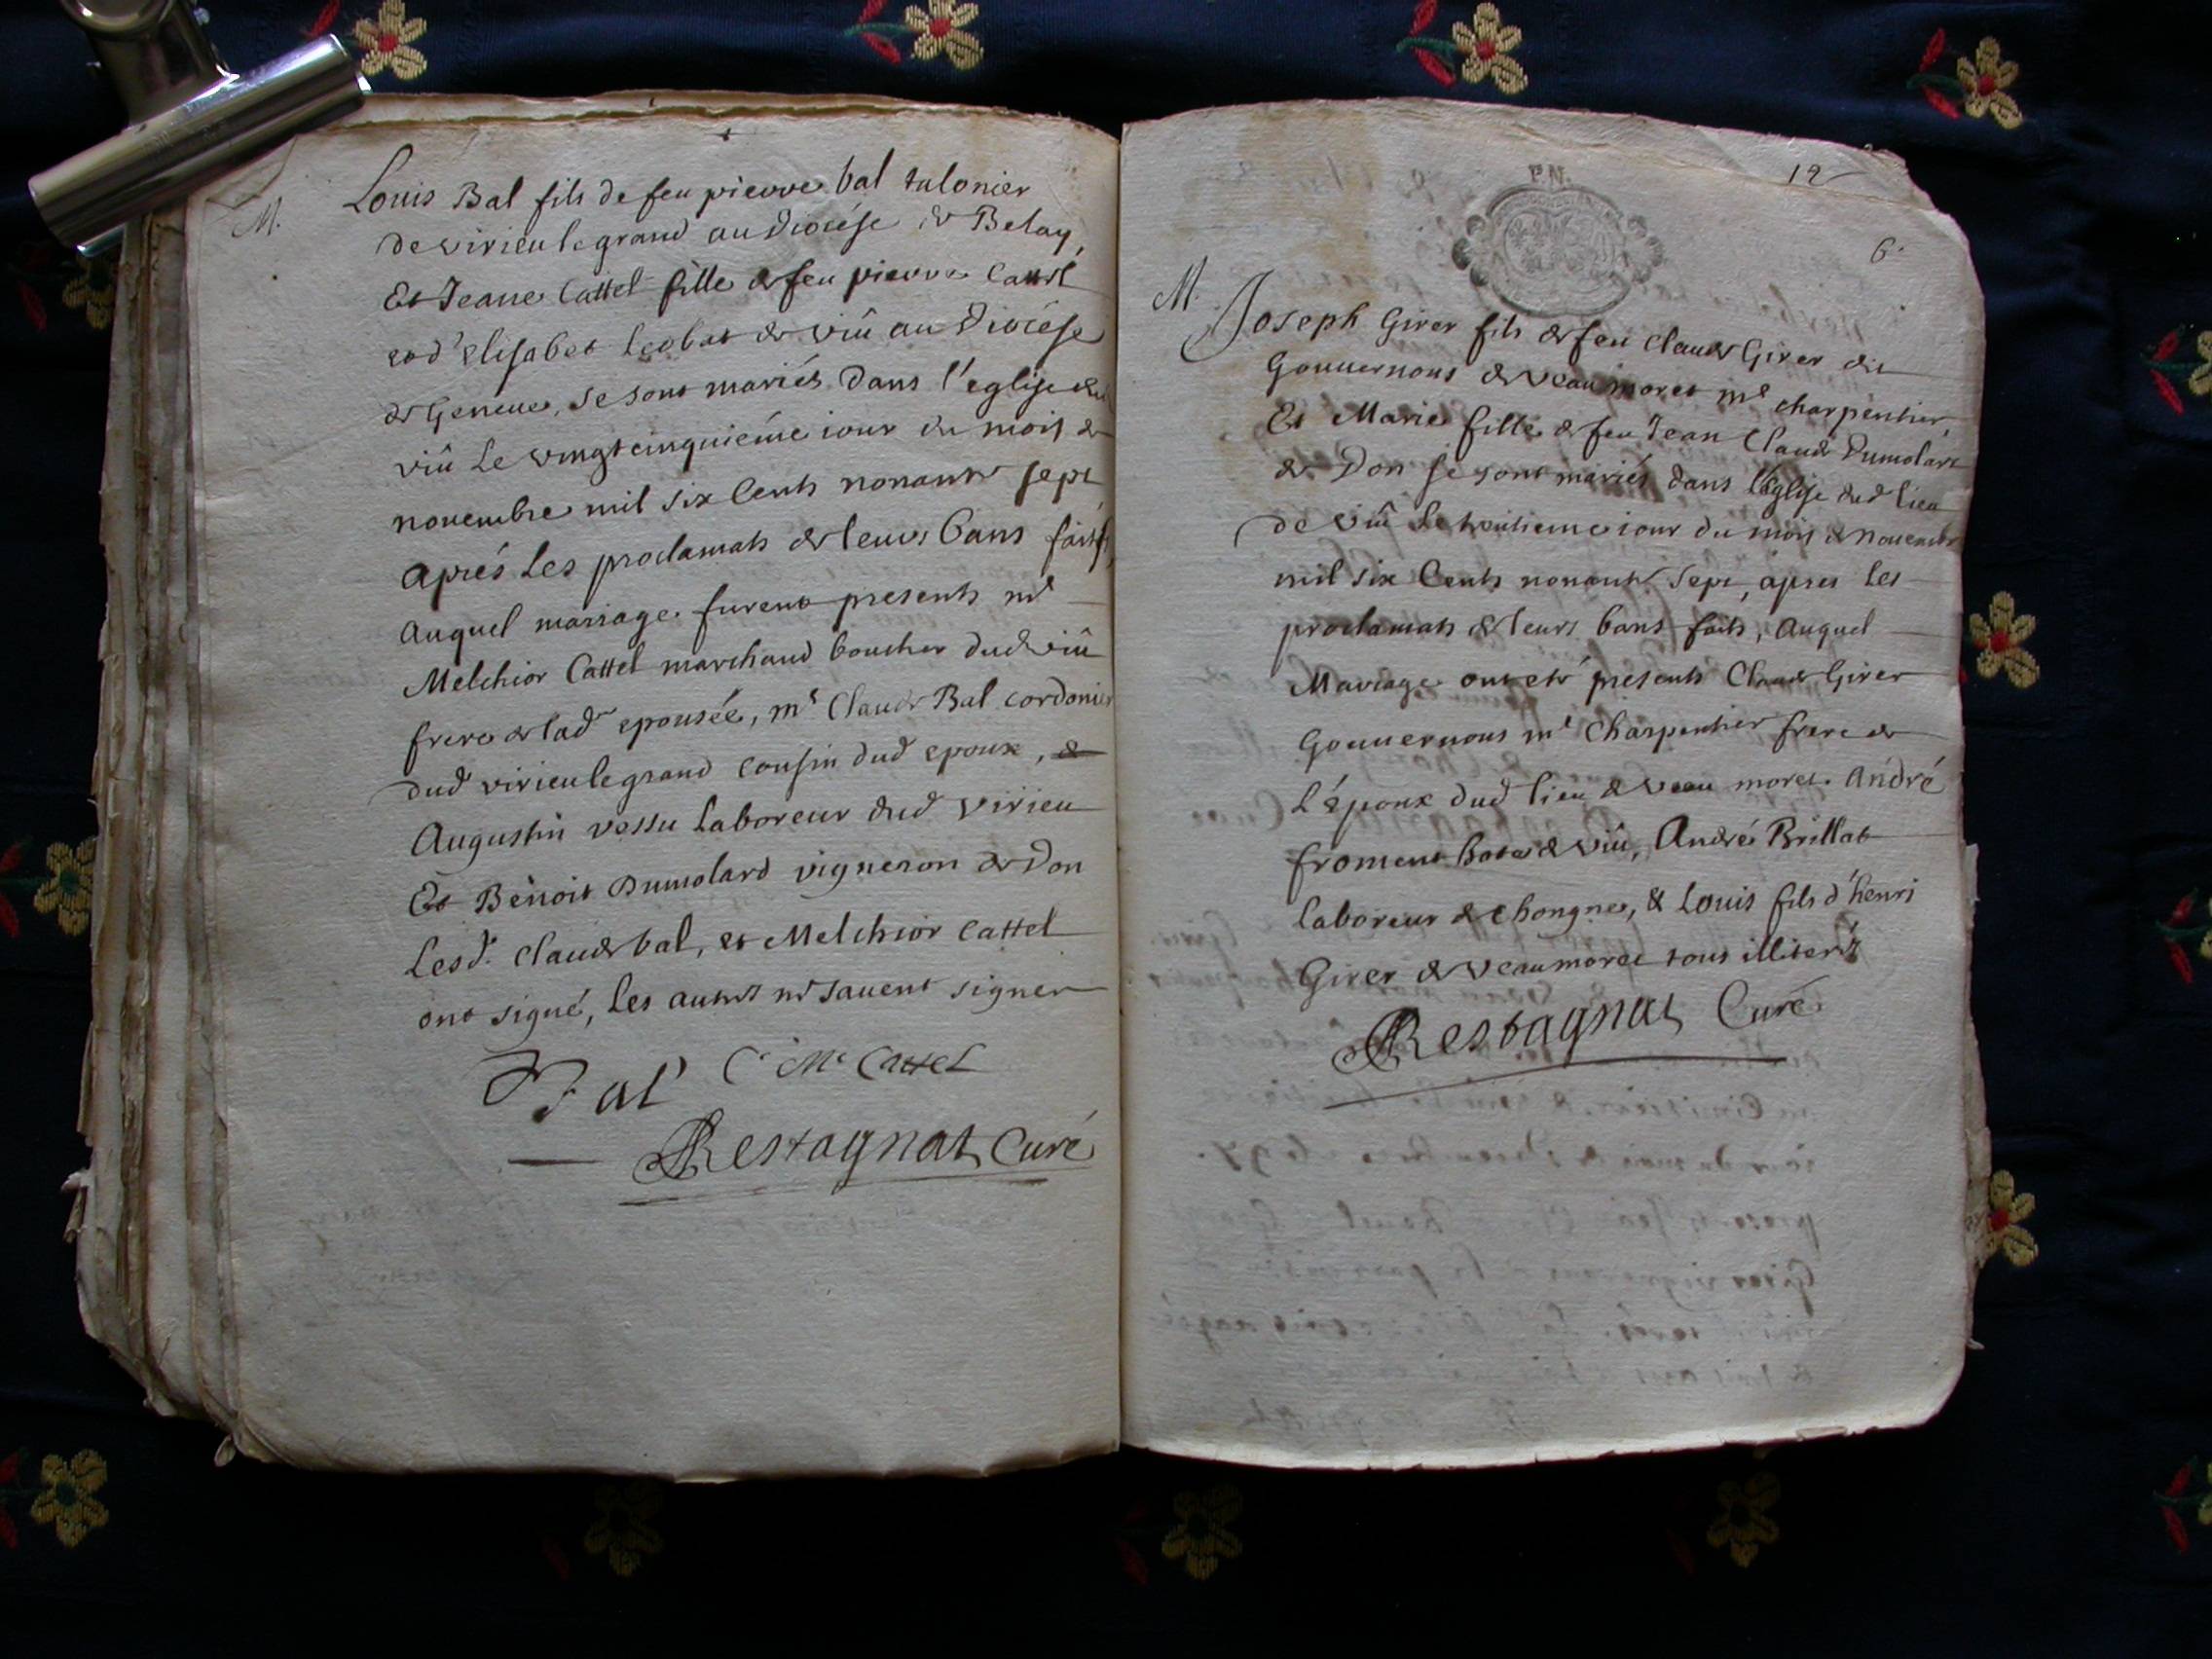 M.
Louis Bal fils de feu pierre bal talonier
de virieu le grand au diocése de Belay,
Et Jeane Cattel fille de feu pierre Cattel
et d'Elisabet de viû au diocése
de Geneue, se sont mariés dans l'eglise de
viû Le vingt cinquiéme iour du mois de
nouembre mil six Cents nonante sept
Aprés Les proclamats de leurs bans faits,
Auquel mariage furent presents me
Melchior Cattel marchand boucher dud viû
frere de lad epousée, me Claude Bal cordonier
dud virieu le grand cousin dud epoux,
Augustin vessu Laboreur dud virieu
Et Benoit Dumolard vigneron de Don
Lesd. Claude bal, et Melchior Cattel
ont signé, Les autres ne sauent signer
Bal C Me Cattel
Restagnat Curé
P.N.
12
6.
M.
Joseph Girer fils de feu Claude Girer dit
Gouuernous de veaumoret me charpentier,
Et Marie fille de feu Jean Claude Dumolard
de Don se sont mariés dans l'églige dud lieu
de viû Le trentieme iour du mois de nouembre
mil six Cents nonante sept, apres les
proclamats de leurs bans faits, Auquel
Mariage ont eté presents Claude Girer
Gouuernous me Charpentier frere de
L'époux dud lieu de veau moret. André
froment hote de viû, André Brillat
laboreur de chongne, & Louis fils d'henri
Girer de veaumoret tous illiterés
Restagnat Curé